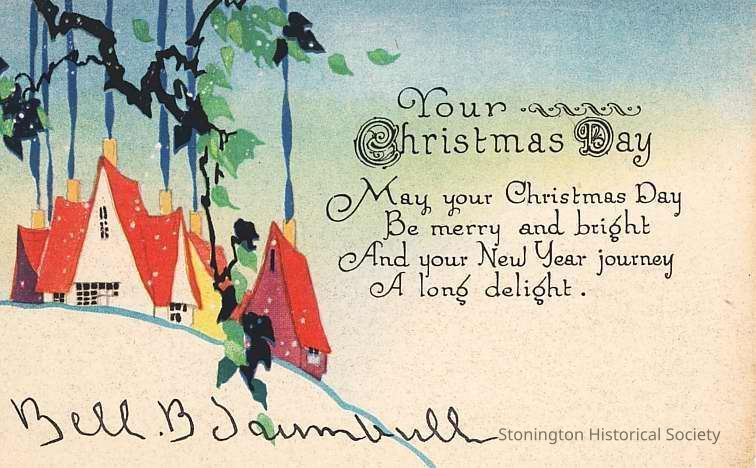 Your
Christmas Day
May your Christmas Day
Be merry and bright
And your New Year journey
A long delight.
Bell. B Trumbull
Stonington Historical Society